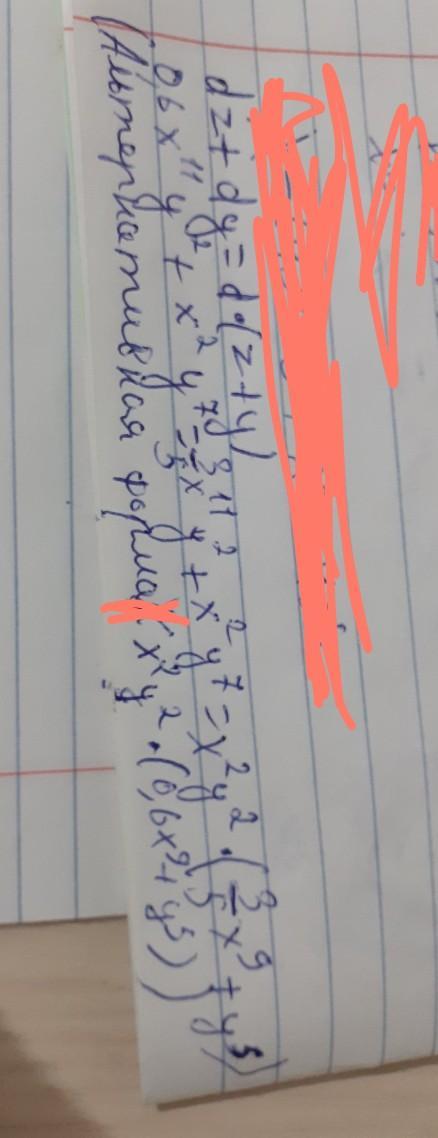 dz + dy = d·(z+y)
0,6x¹¹y² + x²y⁷ = 3/5x¹¹y² + x²y⁷ = x²y²·(3/5x⁹ + y⁵)
(Альтернативная форма x²y²·(0,6x⁹+y⁵))